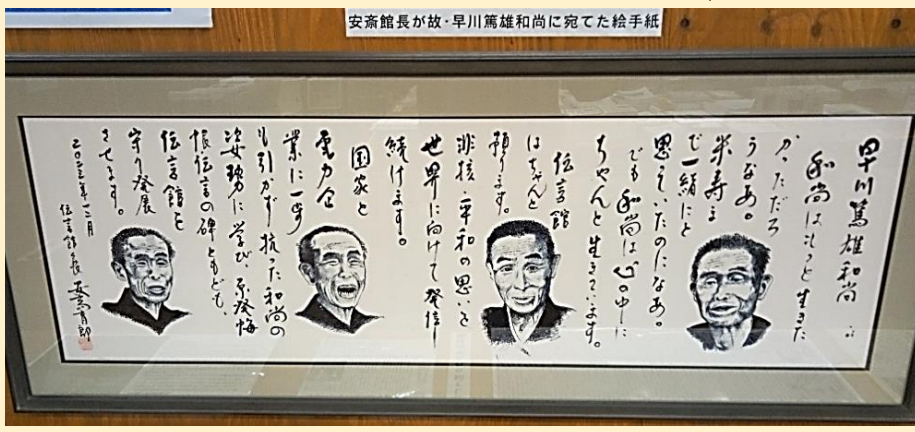 安斎館長が故・早川篤雄和尚に宛てた絵手紙
早川篤雄和尚
和尚はもっと生きた
かっただろ
うなあ。
米寿ま
で一緒にと
思っていたのになあ。
でも和尚は心の中に
ちゃんと生きています。
伝言館
はちゃんと
預ります。
非核・平和の思いを
世界に向けて発信し
続けます。
国家と
電力企
業に一歩
も引かず抗った和尚の
姿勢に学び、原発悔
恨伝言の碑ともども、
伝言館を
守り発展
させます。
二〇二三年一二月
伝言館館長 安斎育郎